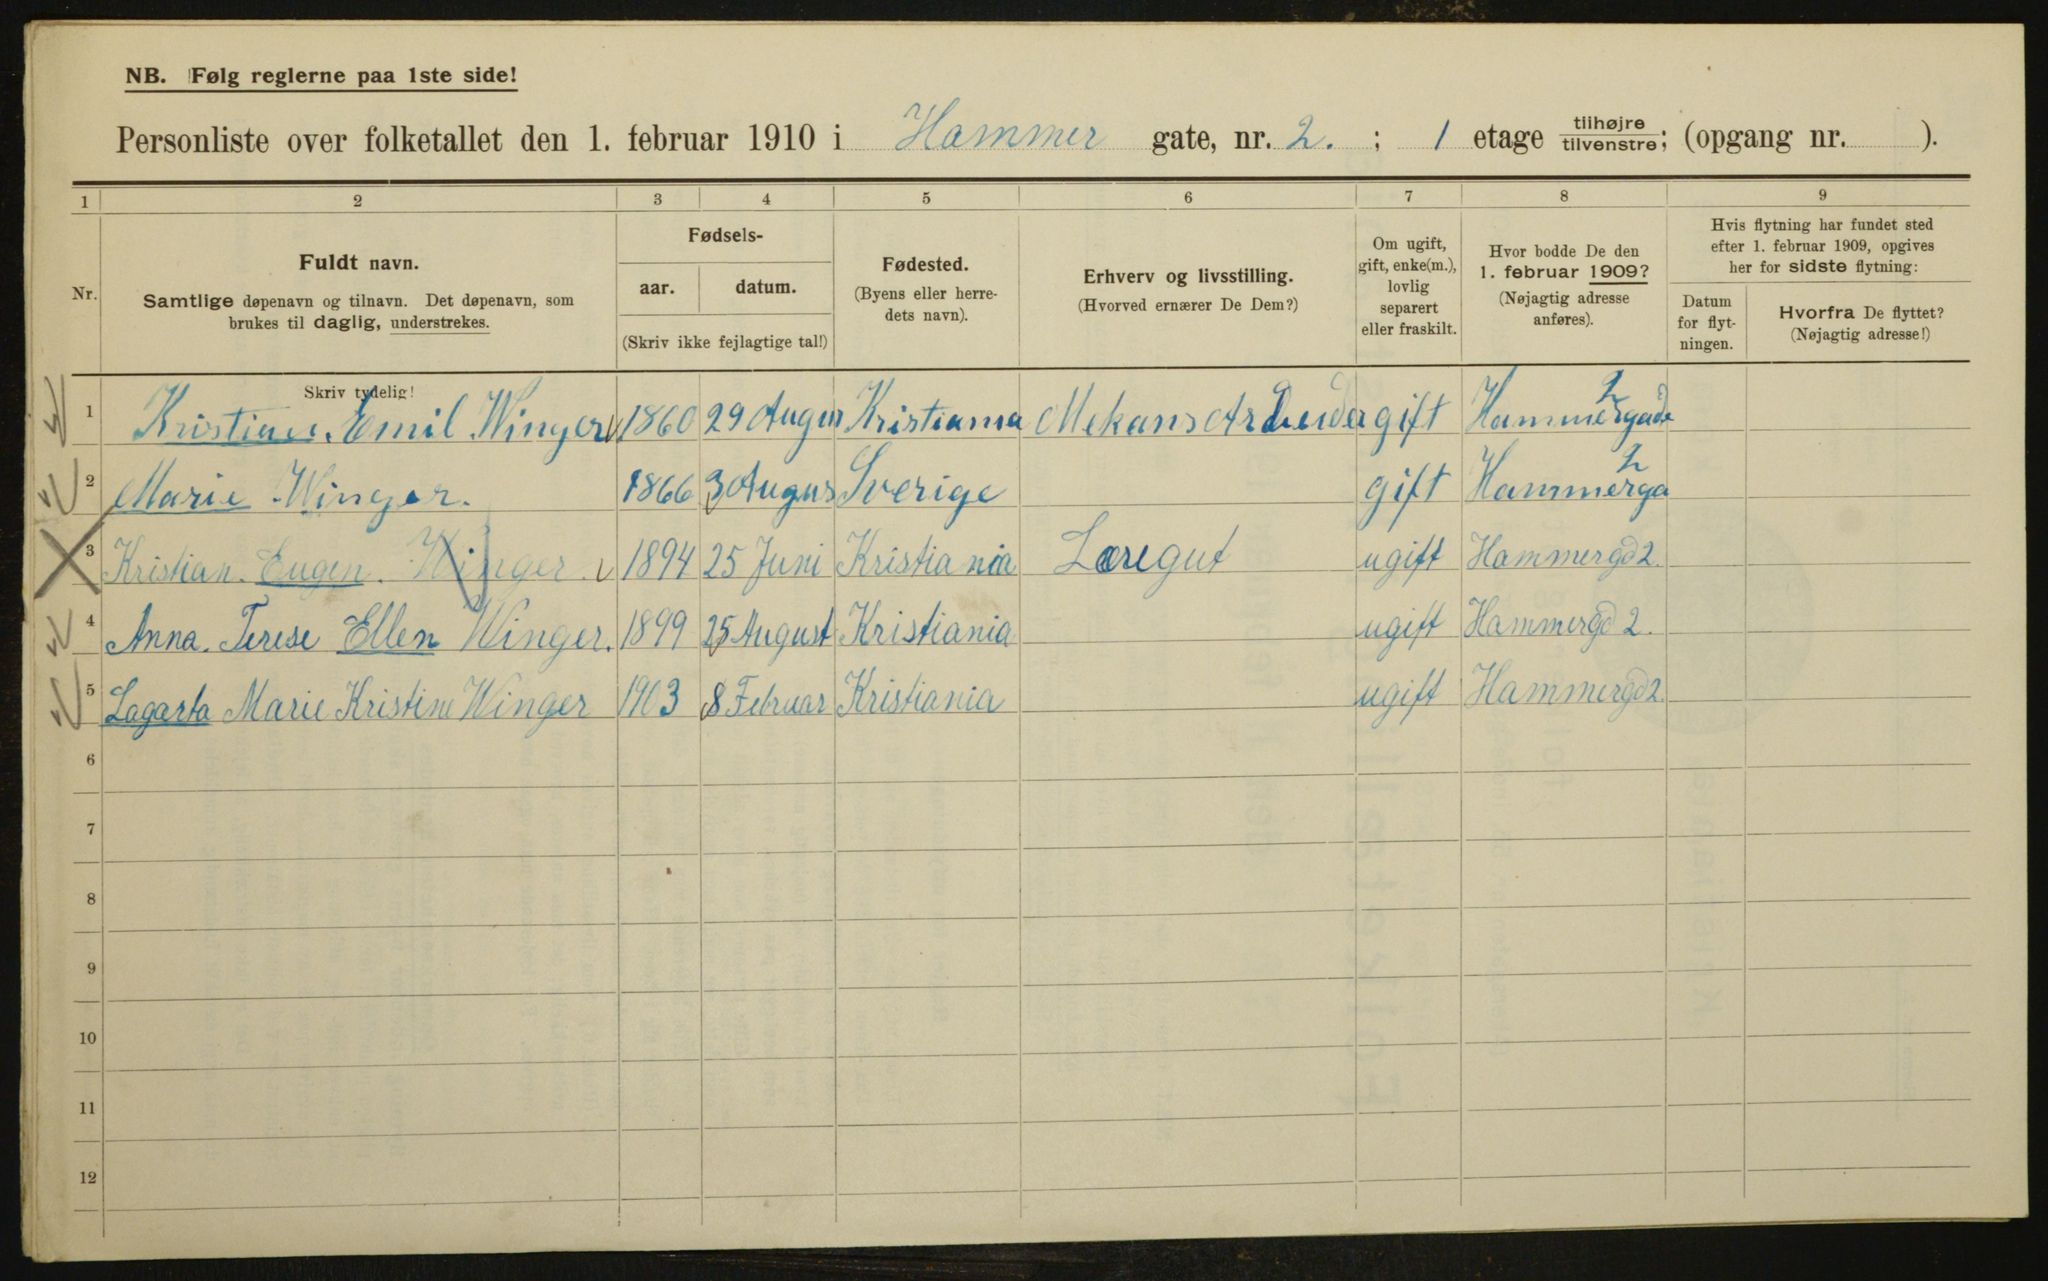 NB. Følg reglerne paa 1ste side!
Personliste over folketallet den 1. februar 1910 i Hammer gate, nr. 2. ; 1 etage tilhøjre/tilvenstre; (opgang nr. ).
1 2 3 4 5 6 7 8 9
Nr.
Fuldt navn.
Samtlige døpenavn og tilnavn. Det døpenavn, som
brukes til daglig, understrekes.
Fødsels-
aar. datum.
(Skriv ikke fejlagtige tal!)
Fødested.
(Byens eller herre-
dets navn).
Erhverv og livsstilling.
(Hvorved ernærer De Dem?)
Om ugift,
gift, enke(m.),
lovlig
separert
eller fraskilt.
Hvor bodde De den
1. februar 1909?
(Nøjagtig adresse
anføres).
Hvis flytning har fundet sted
efter 1. februar 1909, opgives
her for sidste flytning:
Datum
for flyt-
ningen.
Hvorfra De flyttet?
(Nøjagtig adresse!)
Skriv tydelig!
1 Kristian. Emil. Winger 1860 29 Augus Kristiania Mekans Arbeider gift Hammergade 2
2 Marie Winger. 1866 3 Augus Sverige gift Hammerga 2
3 Kristian. Eugen. Winger. 1894 25 Juni Kristiania Læregut ugift Hammergd 2.
4 Anna. Terese Ellen Winger. 1899 25 August Kristiania ugift Hammergd 2.
5 Lagarta Marie Kristine Winger 1903 8 Februar Kristiania ugift Hammergd 2.
6
7
8
9
10
11
12